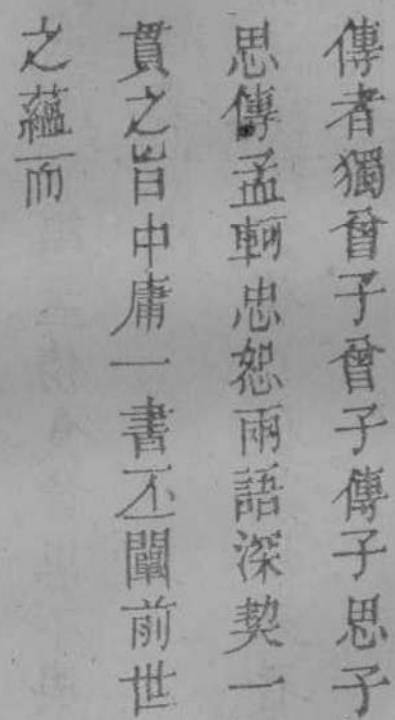 傳者獨曾子曾子傳子思子
思傳孟軻忠恕兩語深契一
貫之旨中庸一書丕闡前世
之蘊而